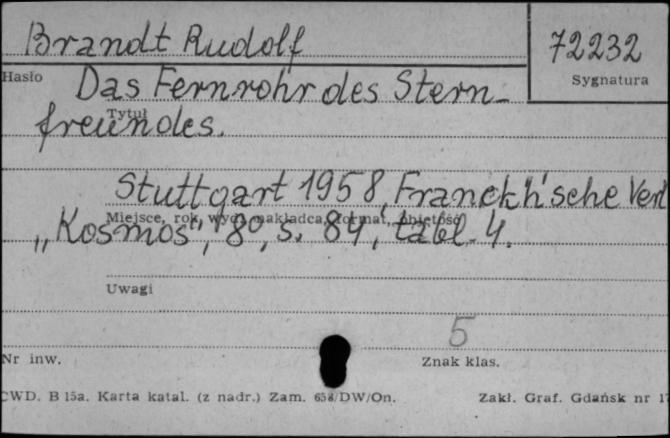 Brandt Rudolf
72232
Hasło
Sygnatura
Das Fernrohr des Stern-
Tytuł
freundes.
Stuttgart 1958, Franckh'sche Verl
Miejsce, rok wyd., nakładca, format, objętość
„Kosmos", 8°, s. 84, tabl. 4.
Uwagi
5
Nr inw.
Znak klas.
CWD. B 15a. Karta katal. (z nadr.) Zam. 658/DW/On.
Zakł. Graf. Gdańsk nr 17